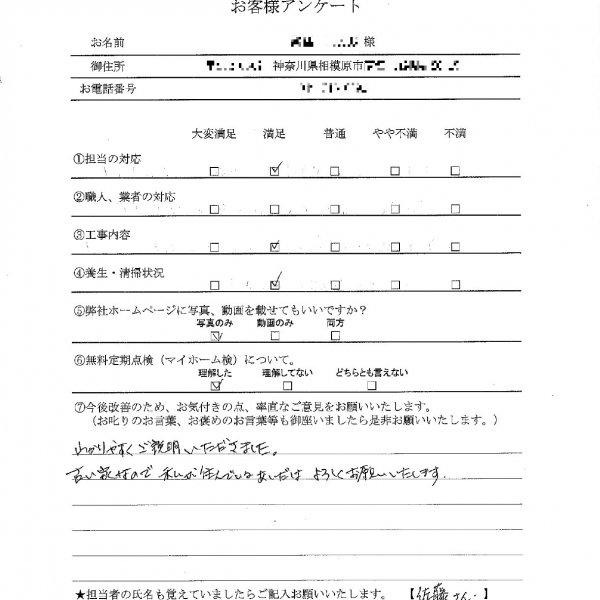 お客様アンケート
お名前 様
御住所 神奈川県相模原市
お電話番号
大変満足 満足 普通 やや不満 不満
①担当の対応
②職人、業者の対応
③工事内容
④養生・清掃状況
⑤弊社ホームページに写真、動画を載せてもいいですか?
写真のみ 動画のみ 両方
⑥無料定期点検(マイホーム検)について。
理解した 理解してない どちらとも言えない
⑦今後改善のため、お気付きの点、率直なご意見をお願いいたします。
(お叱りのお言葉、お褒めのお言葉等も御座いましたら是非お願いいたします。)
わかりやすくご説明いただきました。
古い家なので 私が住んでいるあいだは よろしくお願いいたします.
★担当者の氏名も覚えていましたらご記入お願いいたします。 【佐藤さん.】